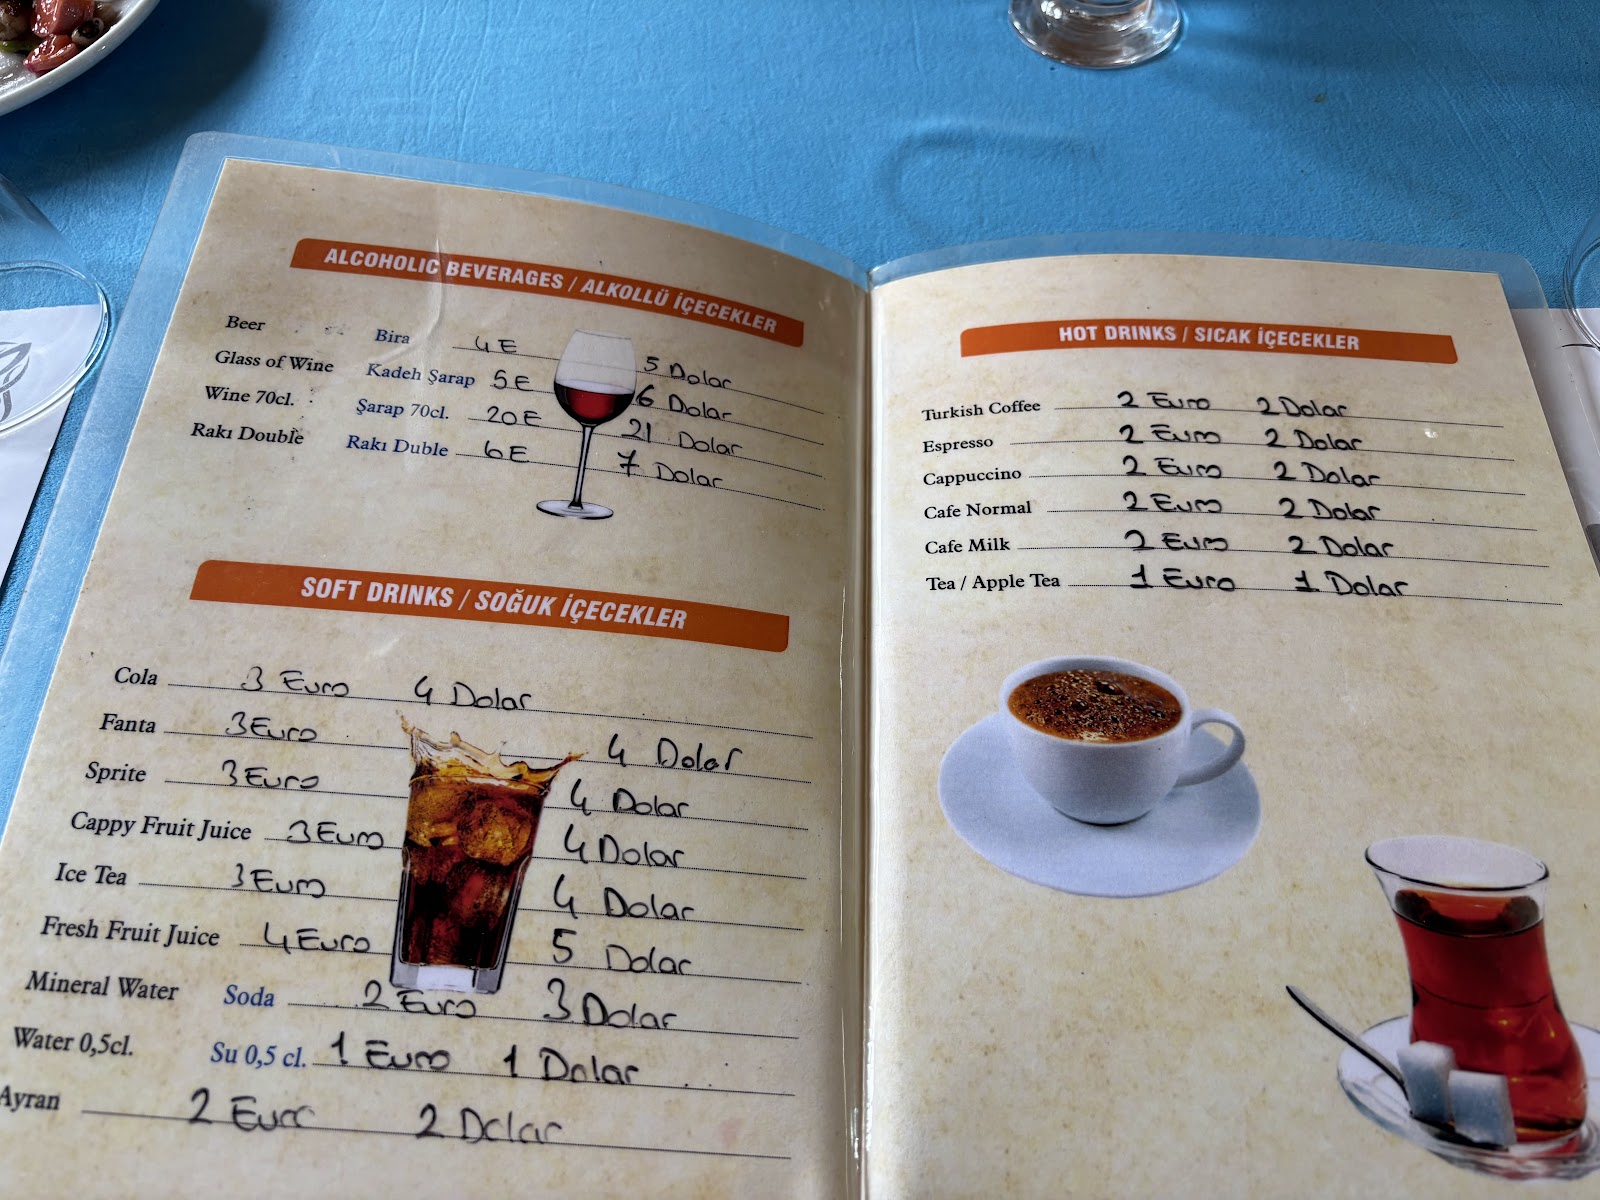 ALCOHOLIC BEVERAGES / ALKOLLÜ İÇECEKLER
Beer Bira 4 E 5 Dolar
Glass of Wine Kadeh Şarap 5 E 6 Dolar
Wine 70cl. Şarap 70cl. 20 E 21 Dolar
Rakı Double Rakı Duble 6 E 7 Dolar
SOFT DRINKS / SOĞUK İÇECEKLER
Cola 3 Euro 4 Dolar
Fanta 3 Euro 4 Dolar
Sprite 3 Euro 4 Dolar
Cappy Fruit Juice 3 Euro 4 Dolar
Ice Tea 3 Euro 4 Dolar
Fresh Fruit Juice 4 Euro 5 Dolar
Mineral Water Soda 2 Euro 3 Dolar
Water 0,5cl. Su 0,5 cl. 1 Euro 1 Dolar
Ayran 2 Euro 2 Dolar
HOT DRINKS / SICAK İÇECEKLER
Turkish Coffee 2 Euro 2 Dolar
Espresso 2 Euro 2 Dolar
Cappuccino 2 Euro 2 Dolar
Cafe Normal 2 Euro 2 Dolar
Cafe Milk 2 Euro 2 Dolar
Tea / Apple Tea 1 Euro 1 Dolar